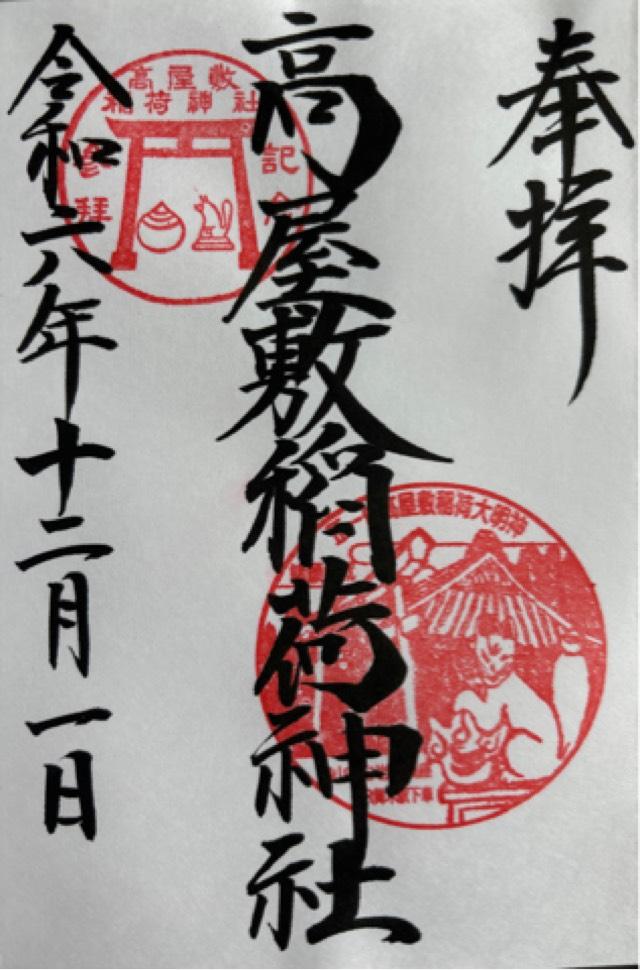 奉拝
高屋敷稲荷神社
高屋敷
稲荷神社
記
拝
高屋敷稲荷大明神
下車
令和六年十二月一日